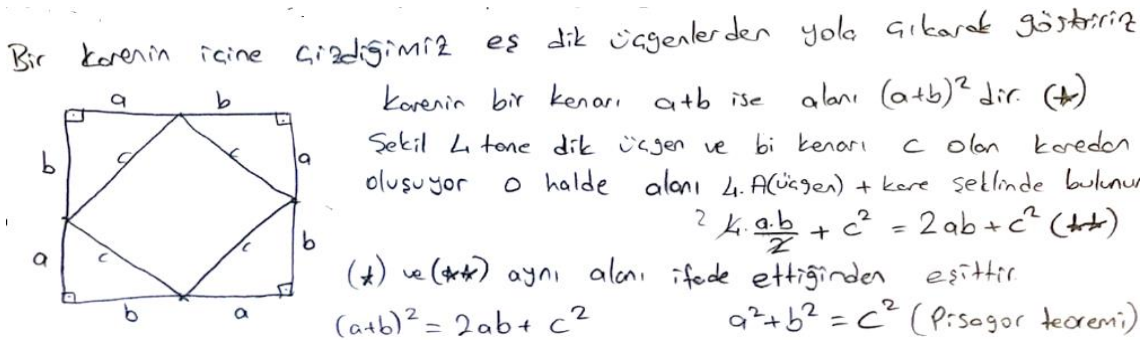 Bir karenin içine çizdiğimiz eş dik üçgenlerden yola çıkarak gösteririz
a b
Karenin bir kenarı a+b ise alanı (a+b)² dir. (*)
b c c a
Şekil 4 tane dik üçgen ve bi kenarı c olan kareden
oluşuyor o halde alanı 4.A(üçgen) + kare şeklinde bulunur
2 4. a.b/2 + c² = 2ab + c² (**)
a c c b
(*) ve (**) aynı alanı ifade ettiğinden eşittir.
b a
(a+b)² = 2ab + c² a² + b² = c² (Pisagor teoremi)